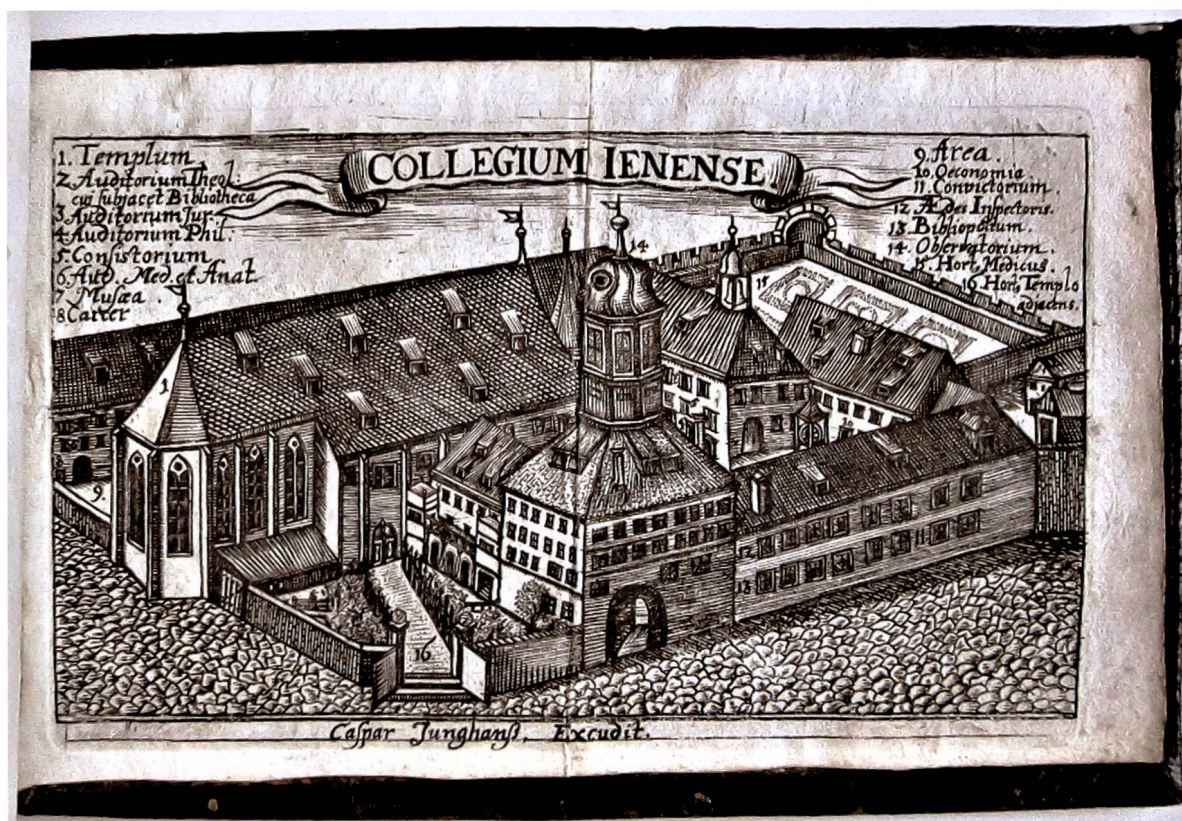 COLLEGIUM IENENSE
1. Templum
2. Auditorium Theol:
cuj subjacet Bibliotheca
3. Auditorium Jur:
4. Auditorium Phil:
5. Consistorium
6. Aud. Med. et Anat
7. Musæa.
8 Carcer
9. Area.
10. Oeconomia.
11. Convictorium.
12. Ædes Inspectoris.
13. Bibliopolium.
14. Observatorium.
15. Hort, Medicus.
16 Hort, Templo
adjacens.
14
15
1
9.
10
12
11
13
16
Caspar Junghanß, Excudit.